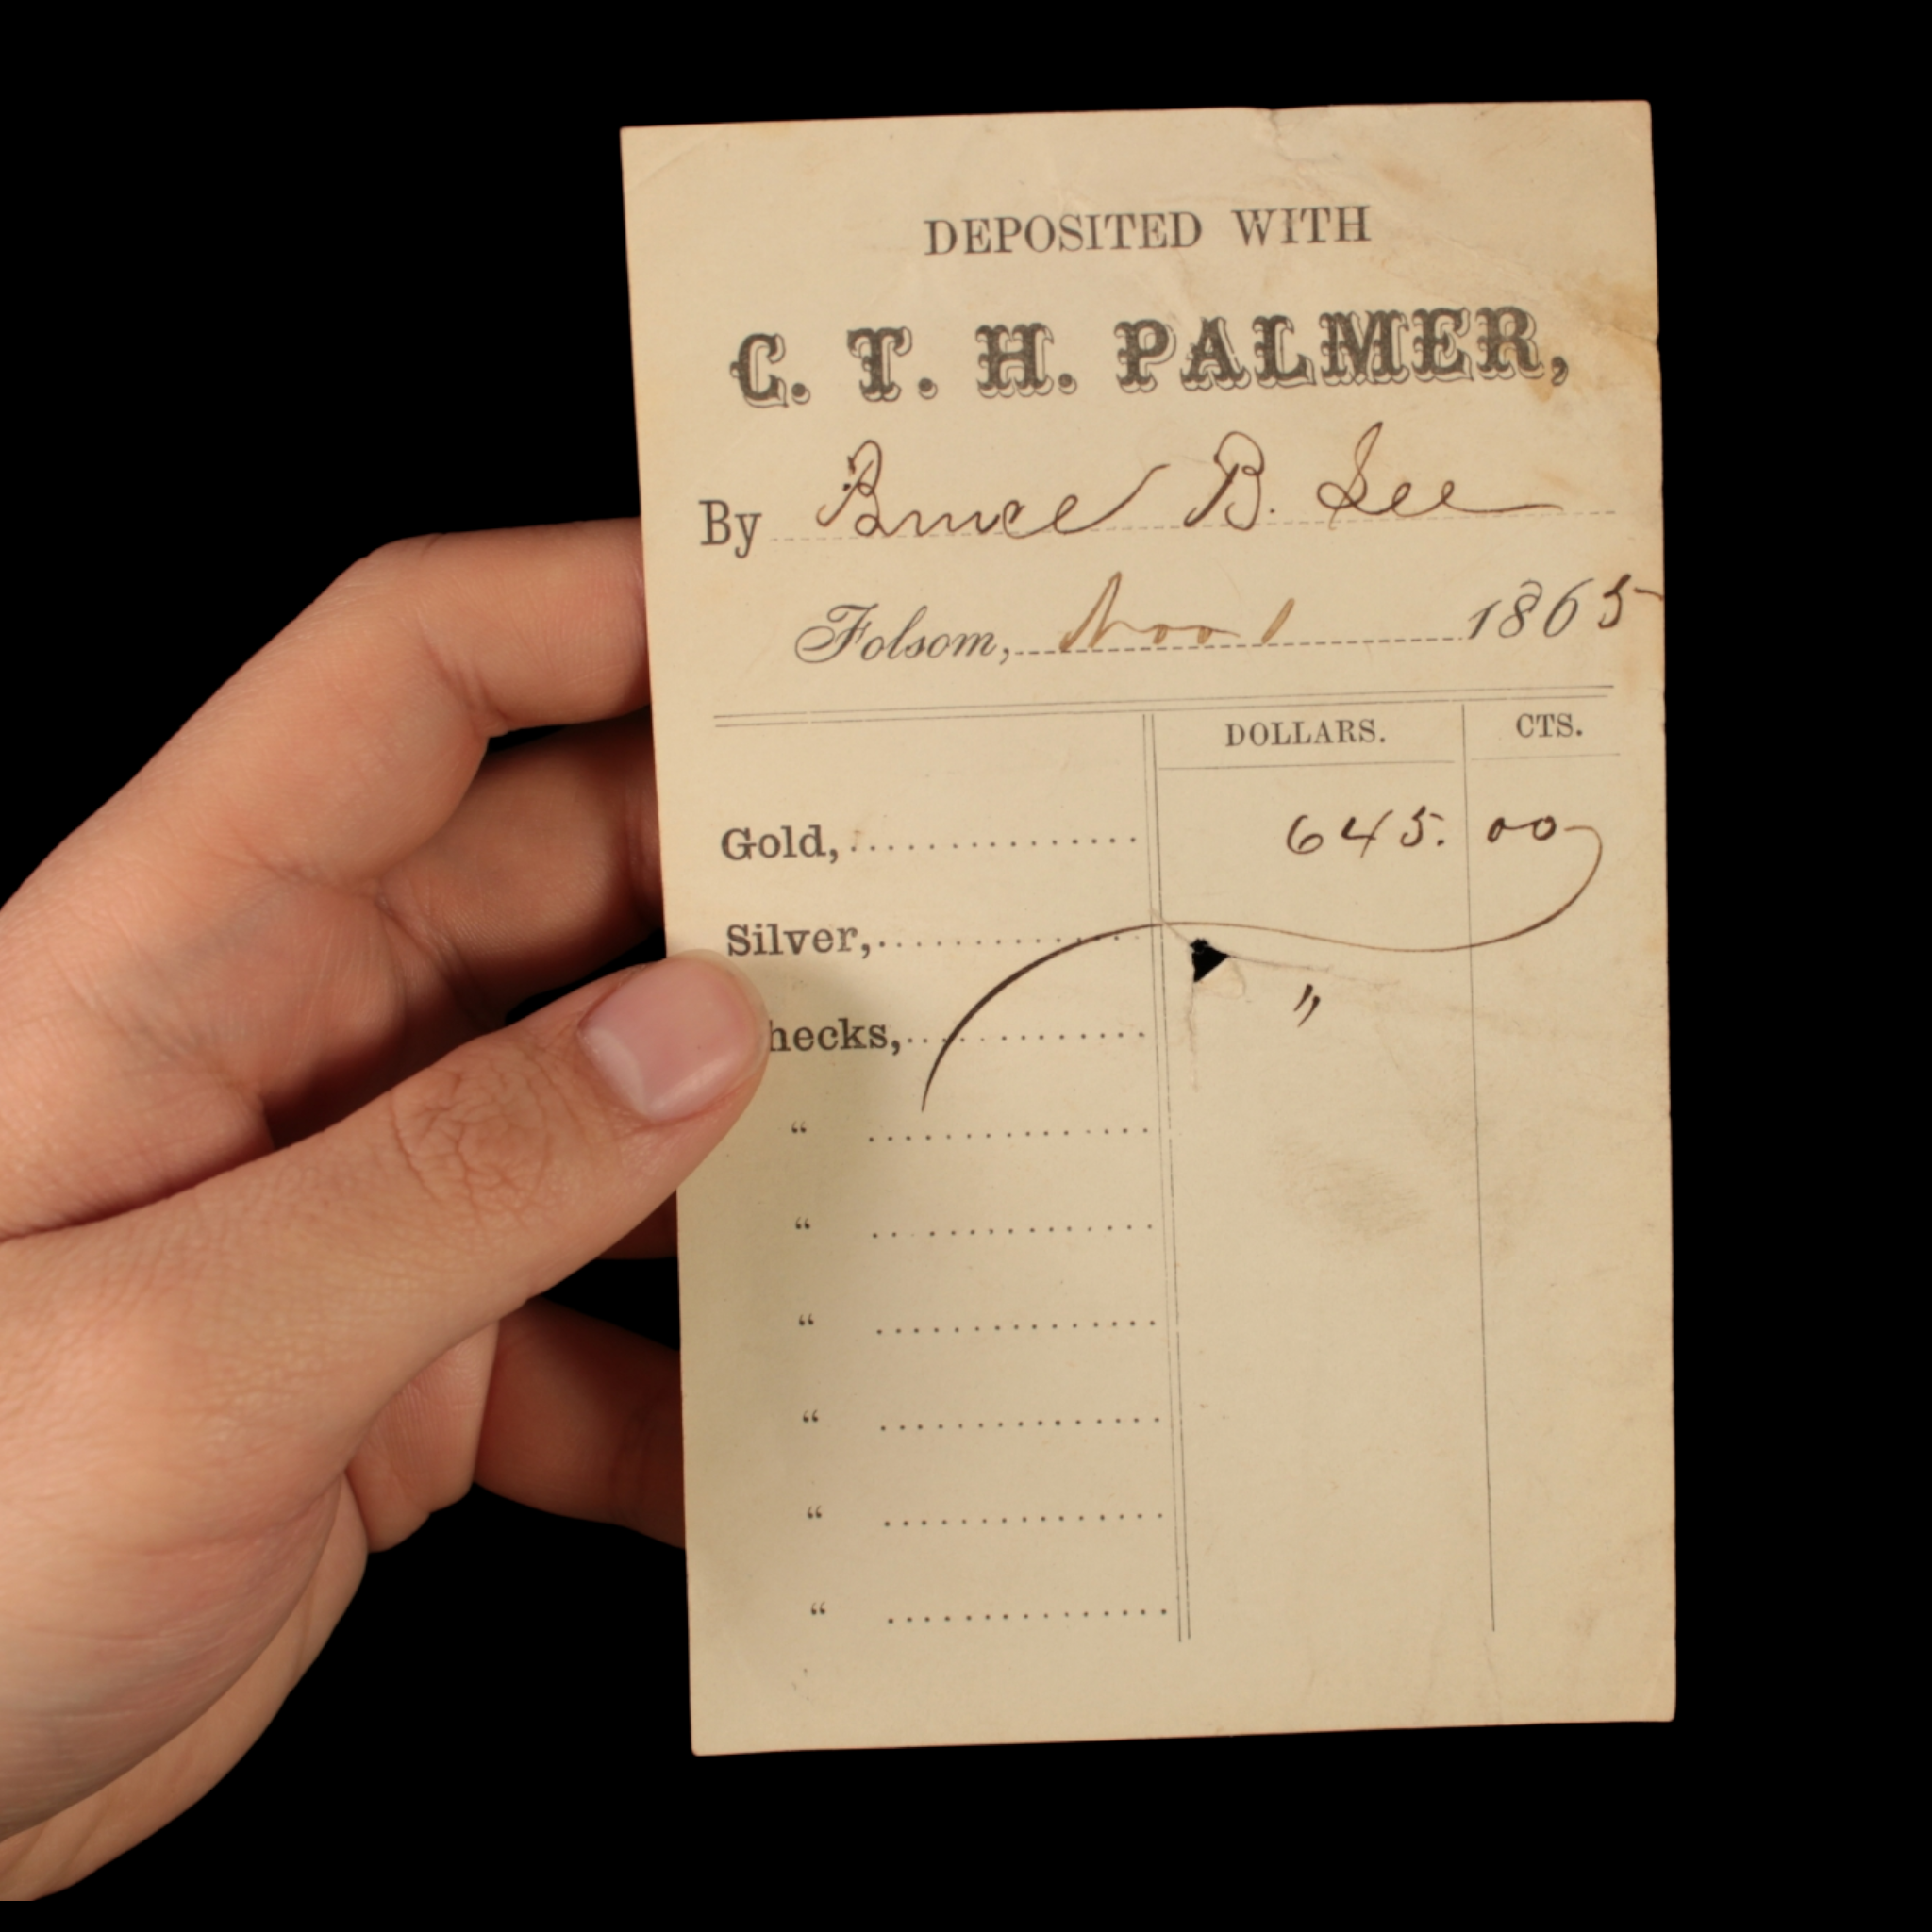 DEPOSITED WITH
C. T. H. PALMER,
By Bruce B. Lee
Folsom, Nov 1 1865
DOLLARS. CTS.
Gold, ............... 645. 00
Silver, ...............
hecks, ............... "
“ ...............
“ ...............
“ ...............
“ ...............
“ ...............
“ ...............